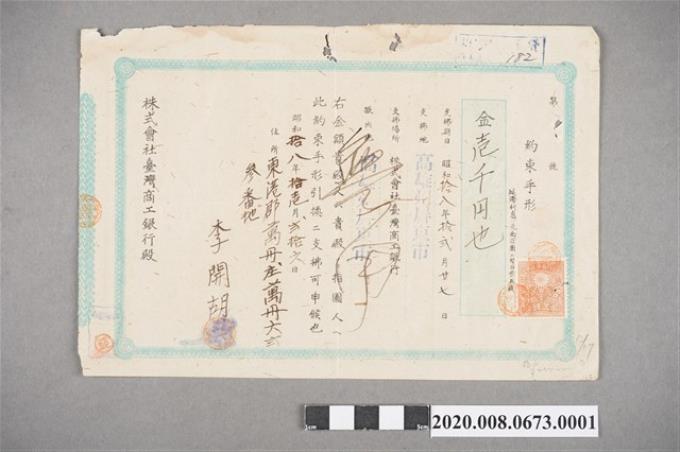 182
第 號
約束手形
金壱千円也
支拂期日 昭和拾八年拾弐月廿七日
支拂地 高雄州屏東市
支拂場所 株式會社臺灣商工銀行
振出地
右金額貴殿又ハ貴殿ノ指圖人ヘ
此約束手形引換ニ支拂可申候也
昭和拾八年拾壱月弐拾六日
住所 東港郡萬丹庄萬丹大
參番地
李開胡
株式會社臺灣商工銀行殿
1cm
5cm
2020.008.0673.0001